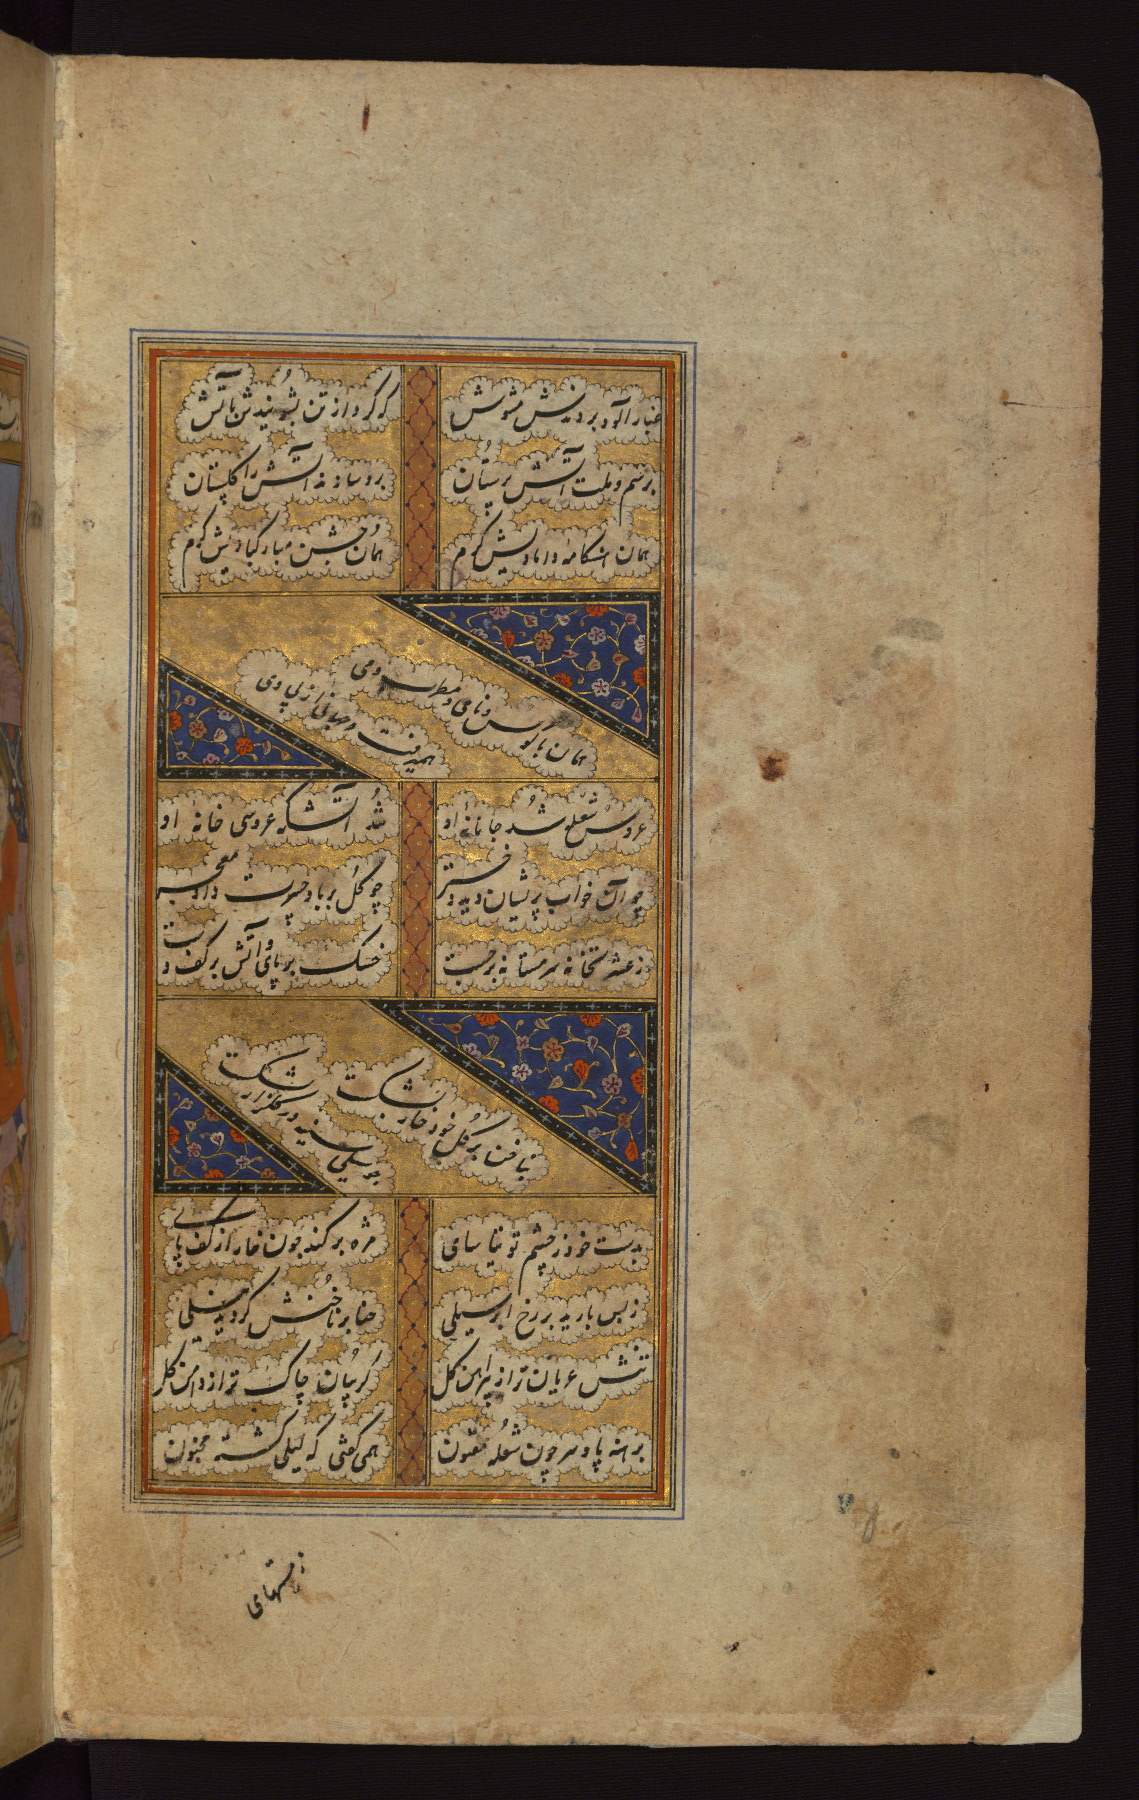 غبار آلود بردندش مشوش که گرد از تن بشویندش بآتش
برسم و ملت آتش پرستان برو سازند آتش را گلستان
همان هنگامه دامادیش گرم همان جشن مبارکبادیش گرم
همان با کوس و نامی و مطرب و می
همیرفت و جهانی از پی وی
عروس شعله شد جانانهٔ او شد آتشگه عروسی خانهٔ او
چو آن خواب پریشان دید دختر چو گل بر باد حسرت داد معجر
ز عشرتخانه سرمستانه برجست خسک بر پای و آتش بر کف دست
بناخن بر گل خود خار بشکست
بسیلی سینه در گلزار بشکست
بدست خود ز چشم توتیا سای مژه بر کند چون خار از کف پای
ز بس بارید بر رخ ابر سیلی حنا بر ناخنش گردید نیلی
تنش عریان تر از پیراهن گل گریبان چاک تر از دامن گل
برهنه پا و سر چون شعله مفتون همی گفتی که لیلی گشته مجنون